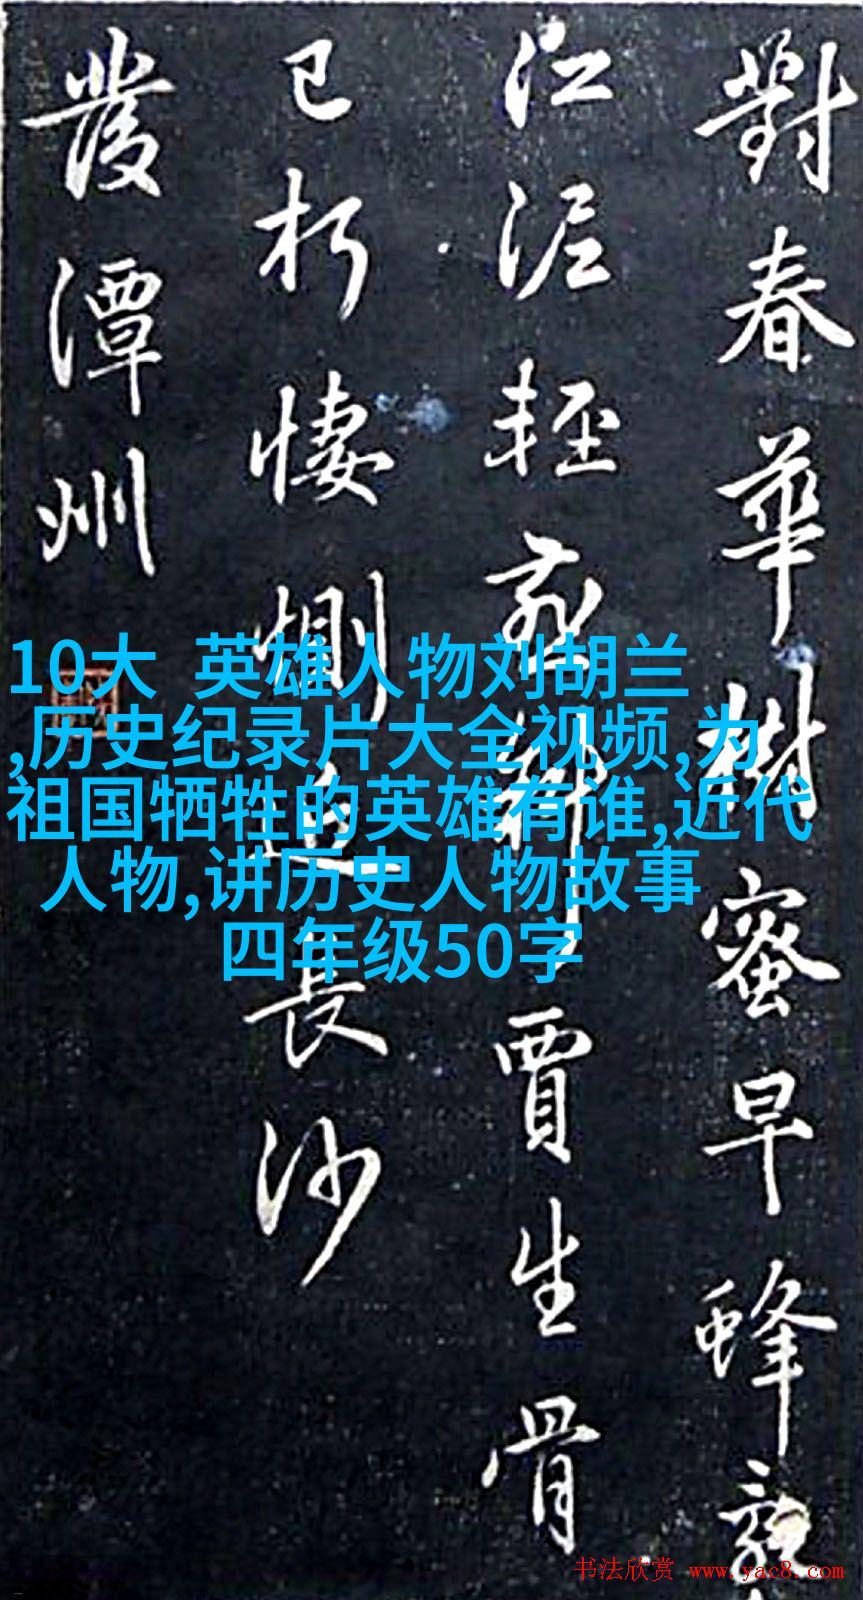 對春華樹蜜早蜂亂
江泥輕燕斜賈生骨
已朽悽惻近長沙
發潭州
10大 英雄人物刘胡兰
,历史纪录片大全视频,为
祖国牺牲的英雄有谁,近代
人物,讲历史人物故事
四年级50字
书法欣赏 www.yac8.com